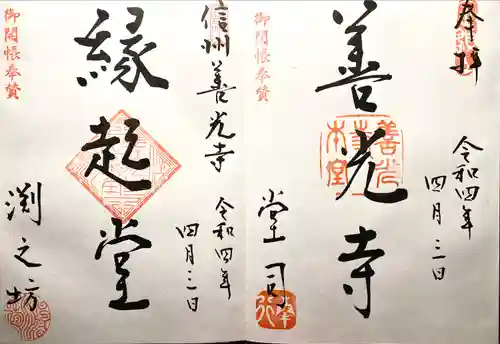 奉拝
令和四年
四月三日
善光寺
善光寺
本堂
御開帳奉賛
堂司
信州善光寺
令和四年
四月三日
縁起堂
御開帳奉賛
渕之坊